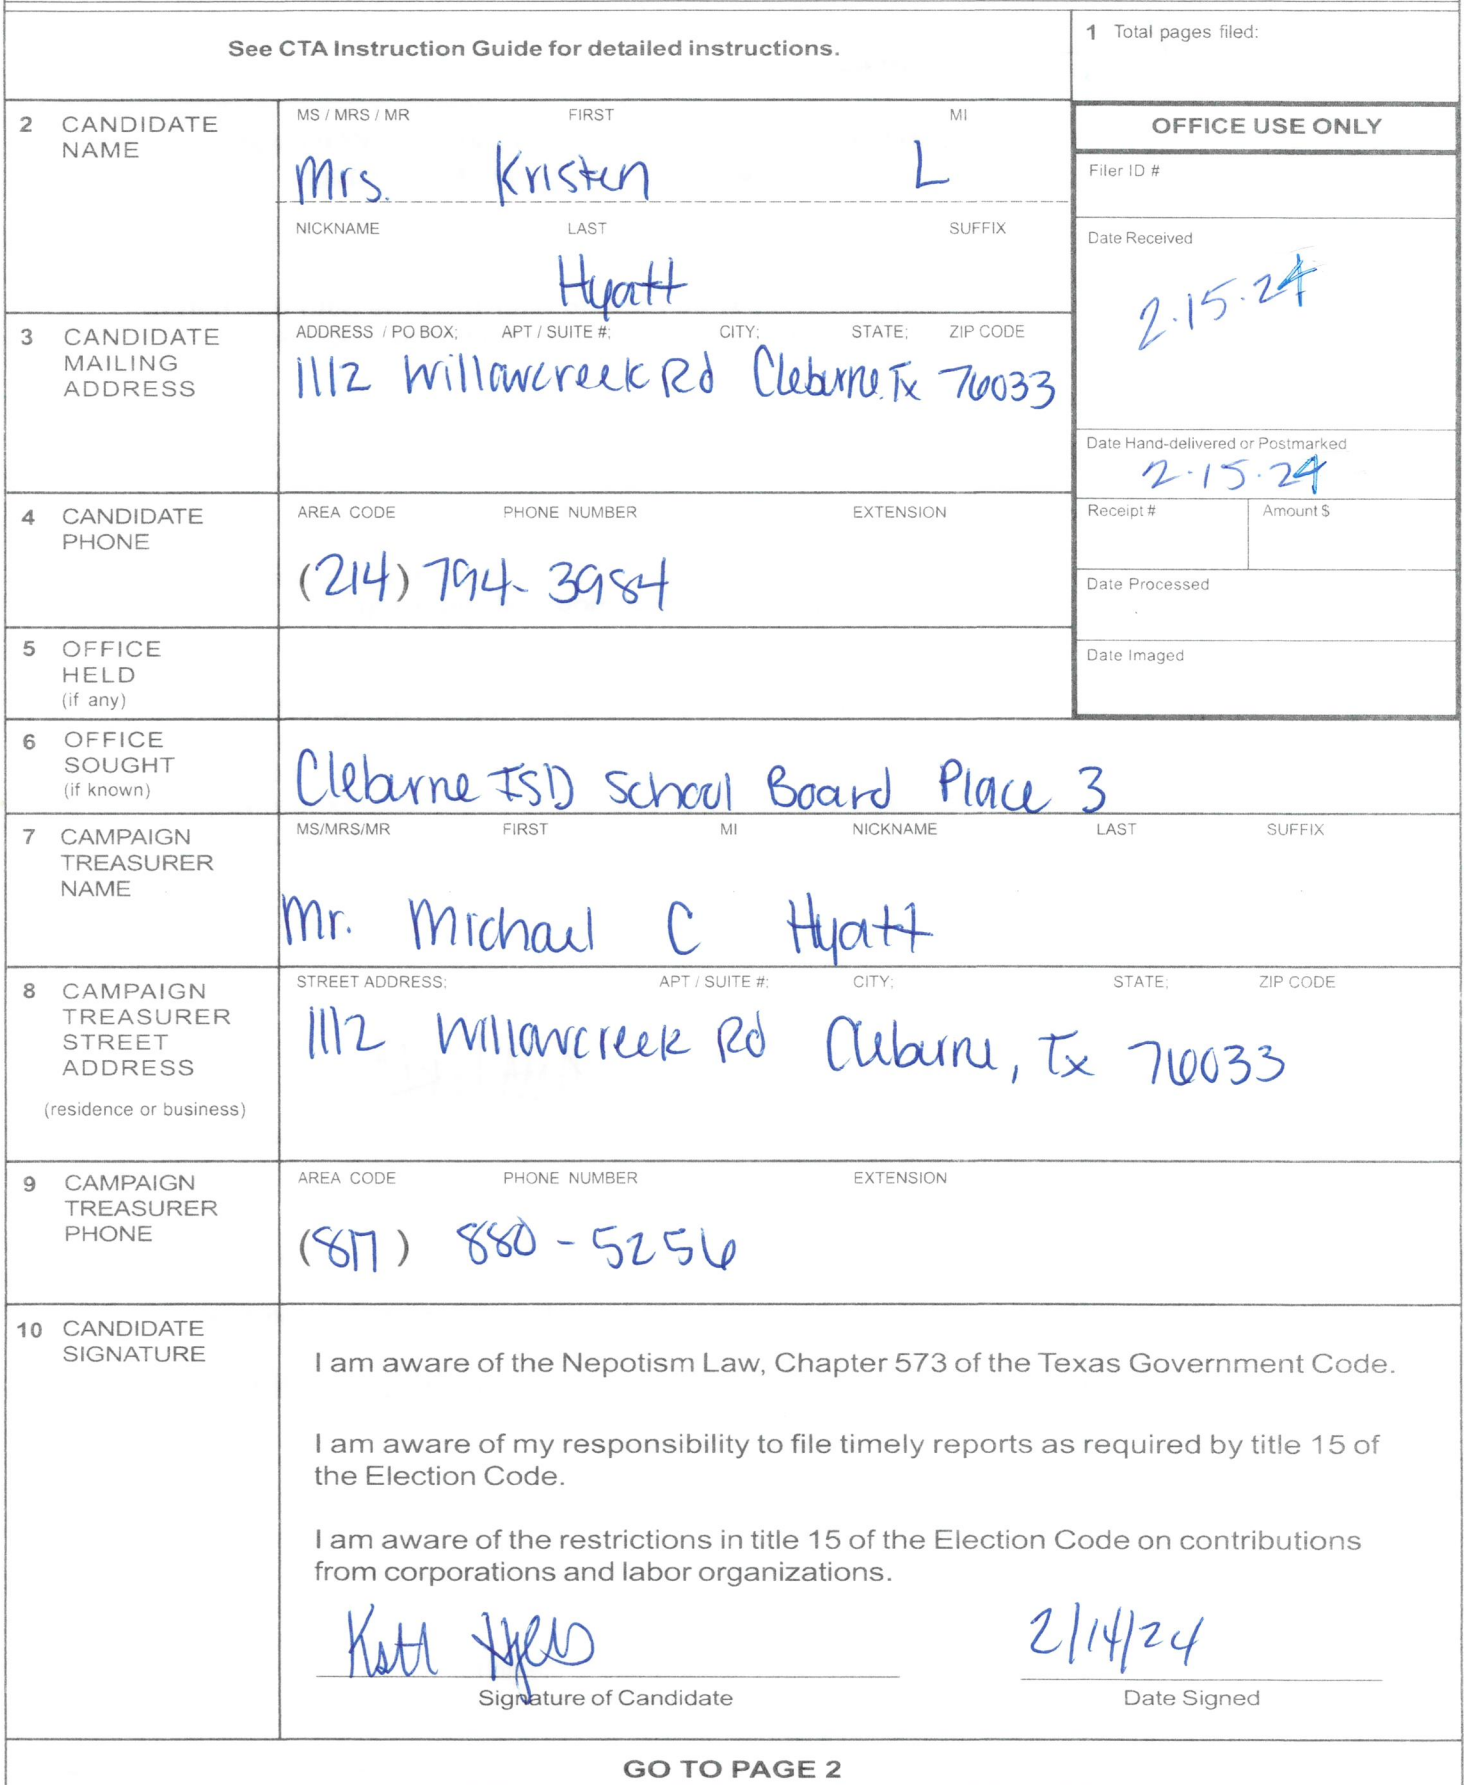 See CTA Instruction Guide for detailed instructions.
1 Total pages filed:
2 CANDIDATE NAME
MS / MRS / MR FIRST MI
Mrs. Kristen L
NICKNAME LAST SUFFIX
Hyatt
OFFICE USE ONLY
Filer ID #
Date Received
2.15.24
Date Hand-delivered or Postmarked
2.15.24
Receipt # Amount $
Date Processed
Date Imaged
3 CANDIDATE MAILING ADDRESS
ADDRESS / PO BOX; APT / SUITE #; CITY; STATE; ZIP CODE
1112 Willowcreek Rd Cleburne. Tx 76033
4 CANDIDATE PHONE
AREA CODE PHONE NUMBER EXTENSION
(214) 794-3984
5 OFFICE HELD (if any)
6 OFFICE SOUGHT (if known)
Cleburne ISD School Board Place 3
7 CAMPAIGN TREASURER NAME
MS/MRS/MR FIRST MI NICKNAME LAST SUFFIX
Mr. Michael C Hyatt
8 CAMPAIGN TREASURER STREET ADDRESS
(residence or business)
STREET ADDRESS; APT / SUITE #; CITY; STATE; ZIP CODE
1112 Willowcreek Rd Cleburne, Tx 76033
9 CAMPAIGN TREASURER PHONE
AREA CODE PHONE NUMBER EXTENSION
(817) 880-5256
10 CANDIDATE SIGNATURE
I am aware of the Nepotism Law, Chapter 573 of the Texas Government Code.
I am aware of my responsibility to file timely reports as required by title 15 of
the Election Code.
I am aware of the restrictions in title 15 of the Election Code on contributions
from corporations and labor organizations.
2/14/24
Signature of Candidate Date Signed
GO TO PAGE 2